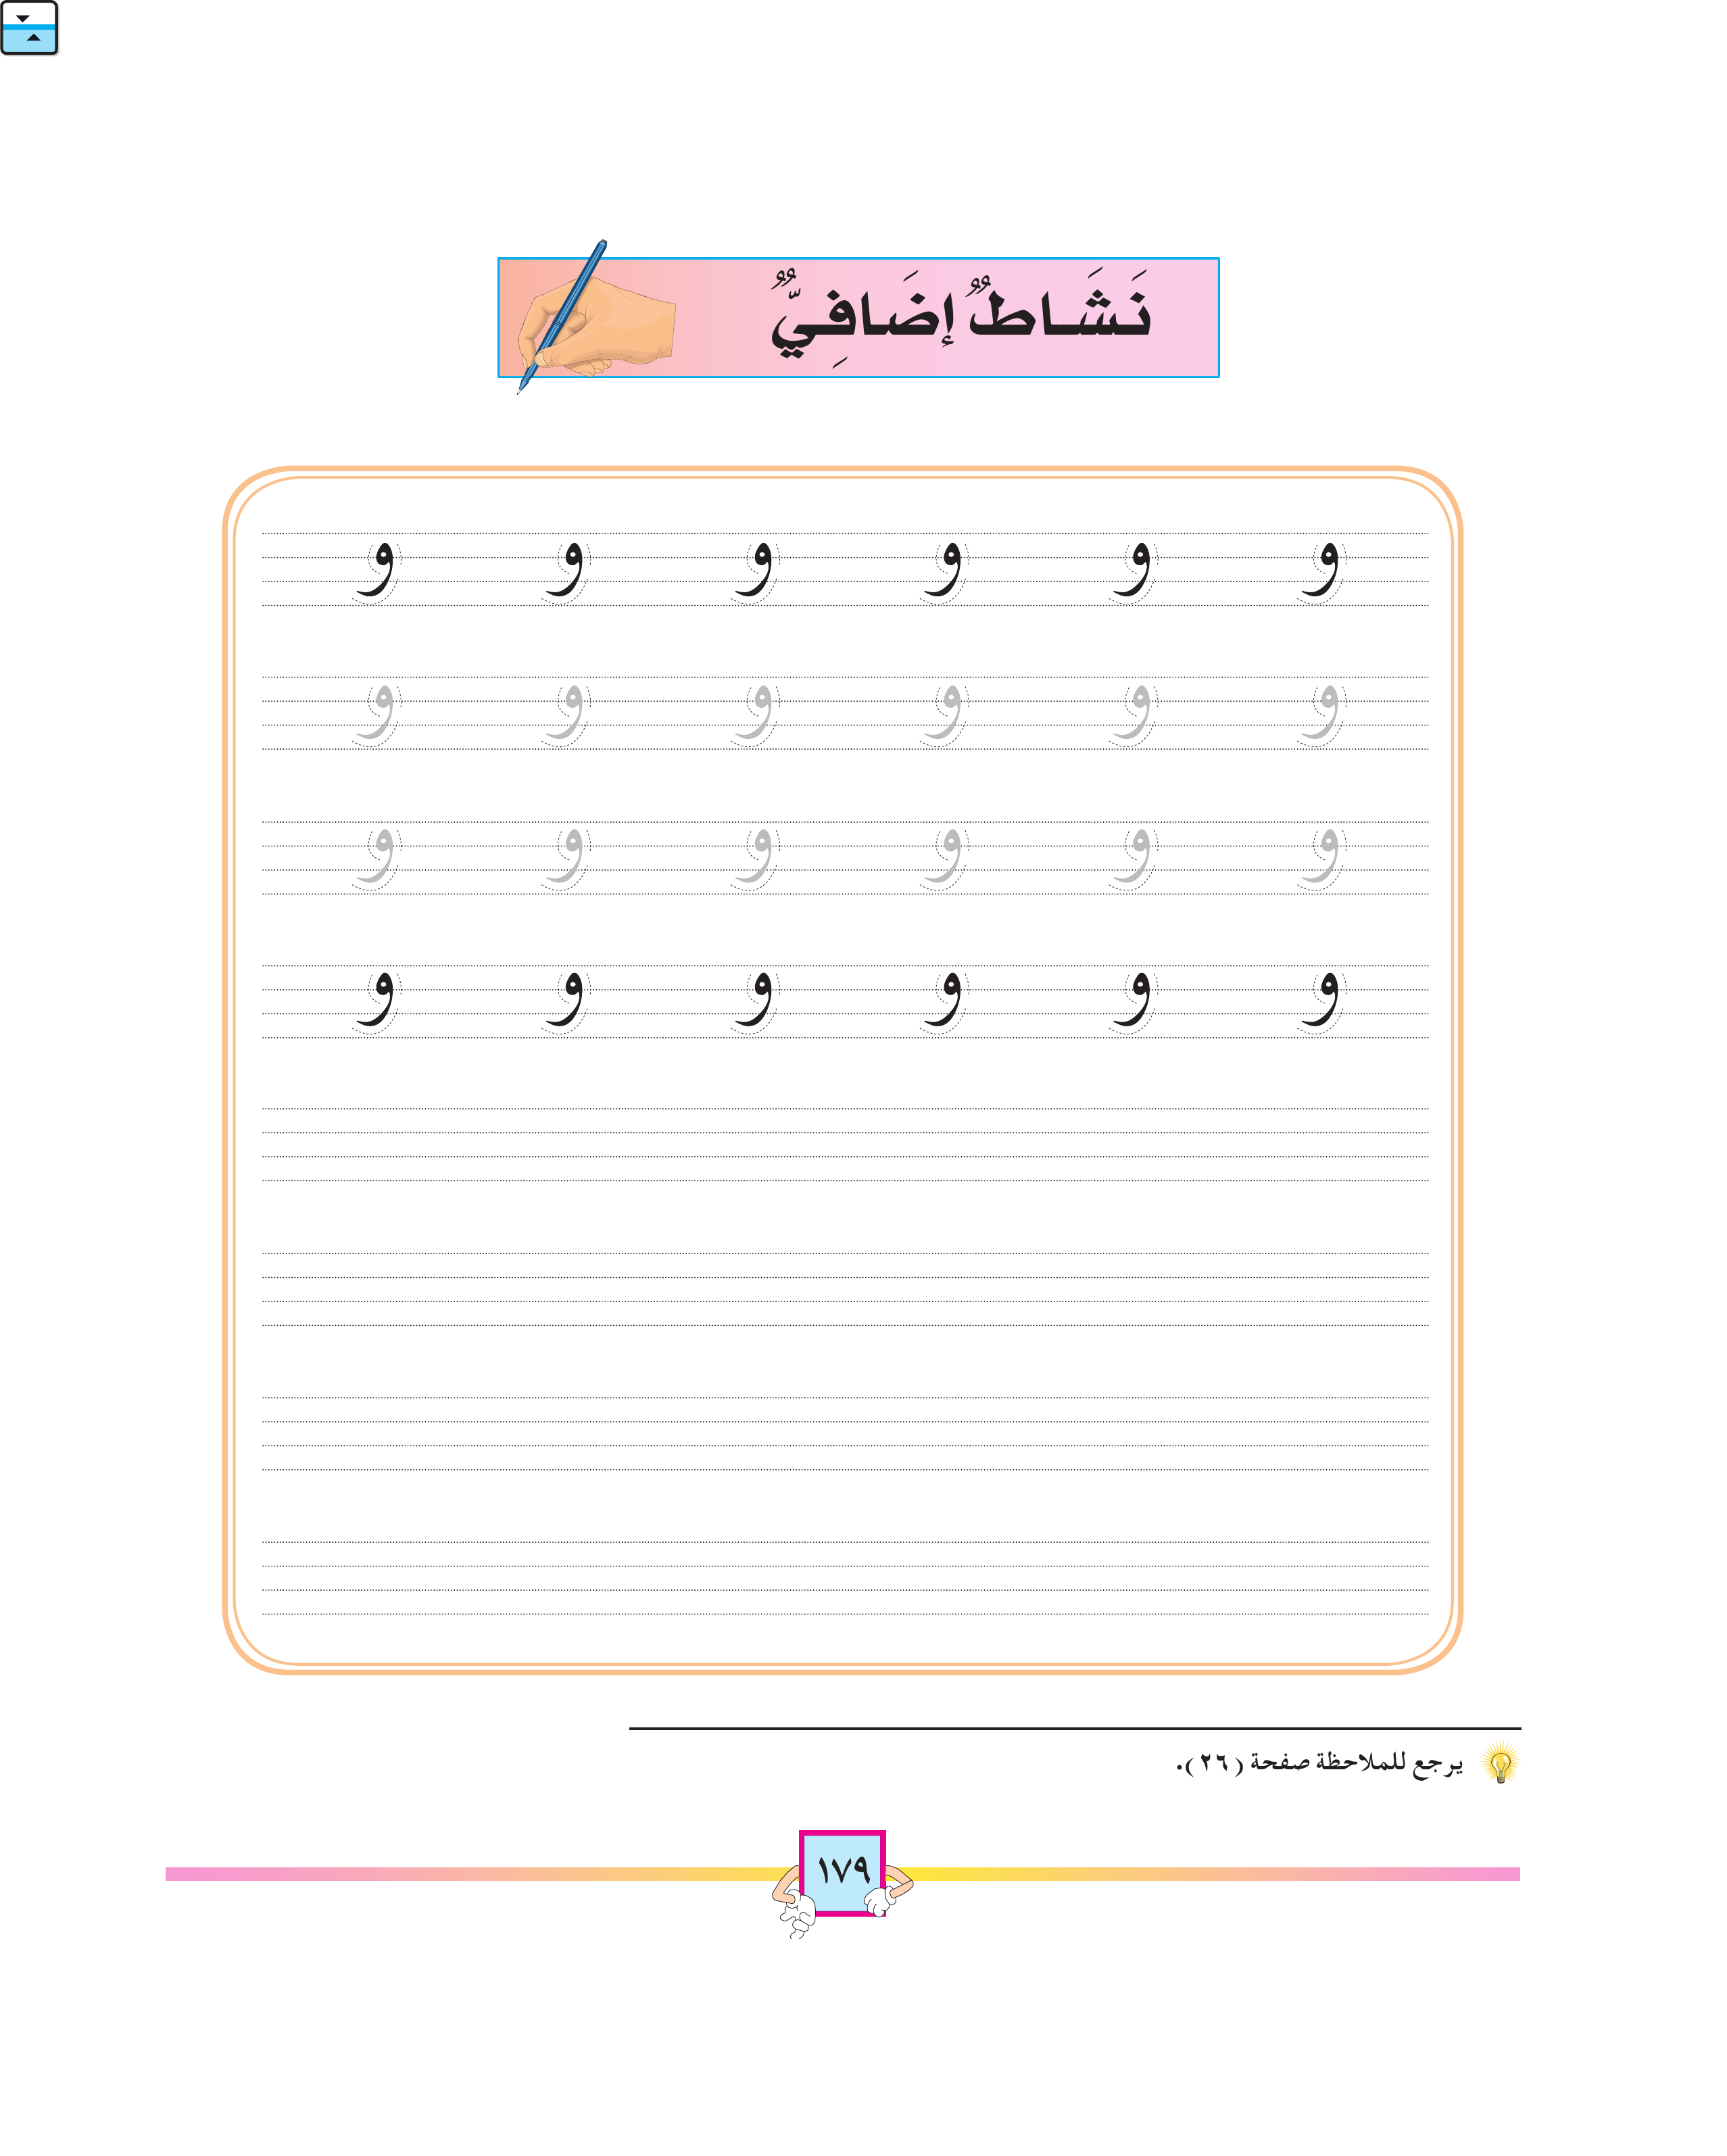 نَشَاطٌ إضَافِيٌّ
و و و و و و
و و و و و و
و و و و و و
و و و و و و
يرجع للملاحظة صفحة (٢٦).
١٧٩